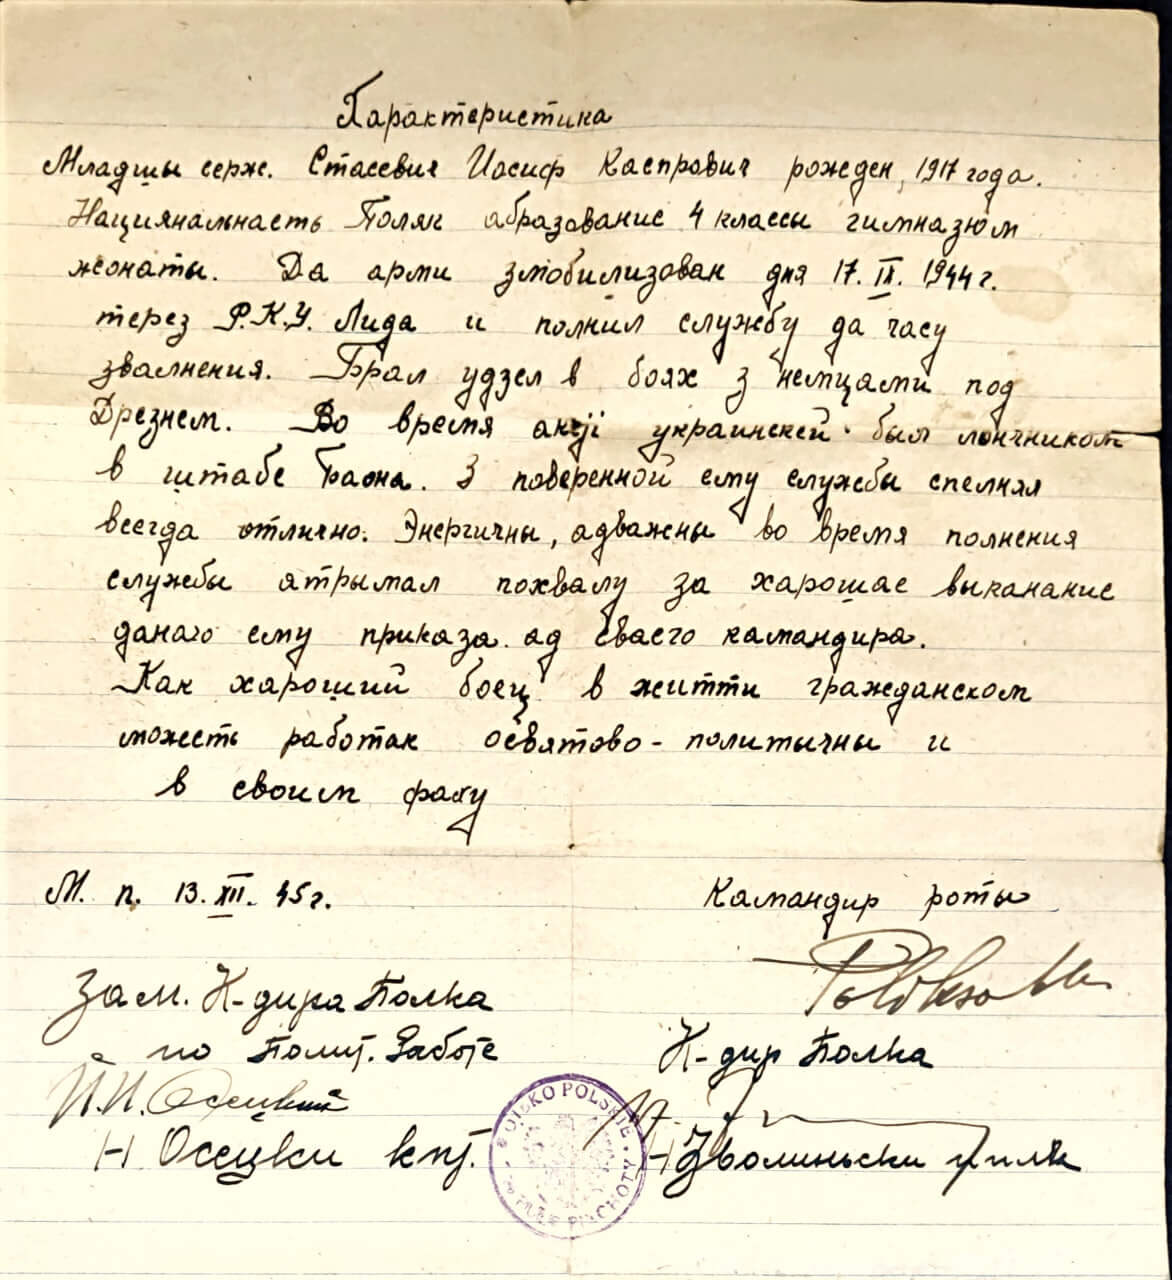 Характеристика
Младшы серж. Стасевич Иосиф Каспрович рожден, 1917 года.
Нациянальнасть Поляк абразование 4 классы гимназюм
жонаты. Да арми змобилизован дня 17. IX. 1944 г.
терез Р.К.У. Лида и полнил службу да часу
звалнения. Брал удзел в боях з немцами под
Дрезнем. Во время акуji украинскей был лончником
в штабе баона. З поверенной ему службы спелнял
всегда отлично. Энергичны, адважены во время полнения
службы атрымал похвалу за харошае выканание
данаго ему приказа ад сваего камандира.
Как хароший боец в житти гражданском
можеть работак освятово - политычны и
в своим фаху
М. п. 13. XII. 45 г.
Камандир роты
Зам. К-дира Полка
по Полит. Работе
К-дир Полка
Н. Осецкий
Н Осецки кпт.
Н Зволиньски
WOJSKO POLSKIE
PUŁK PIECHOTY